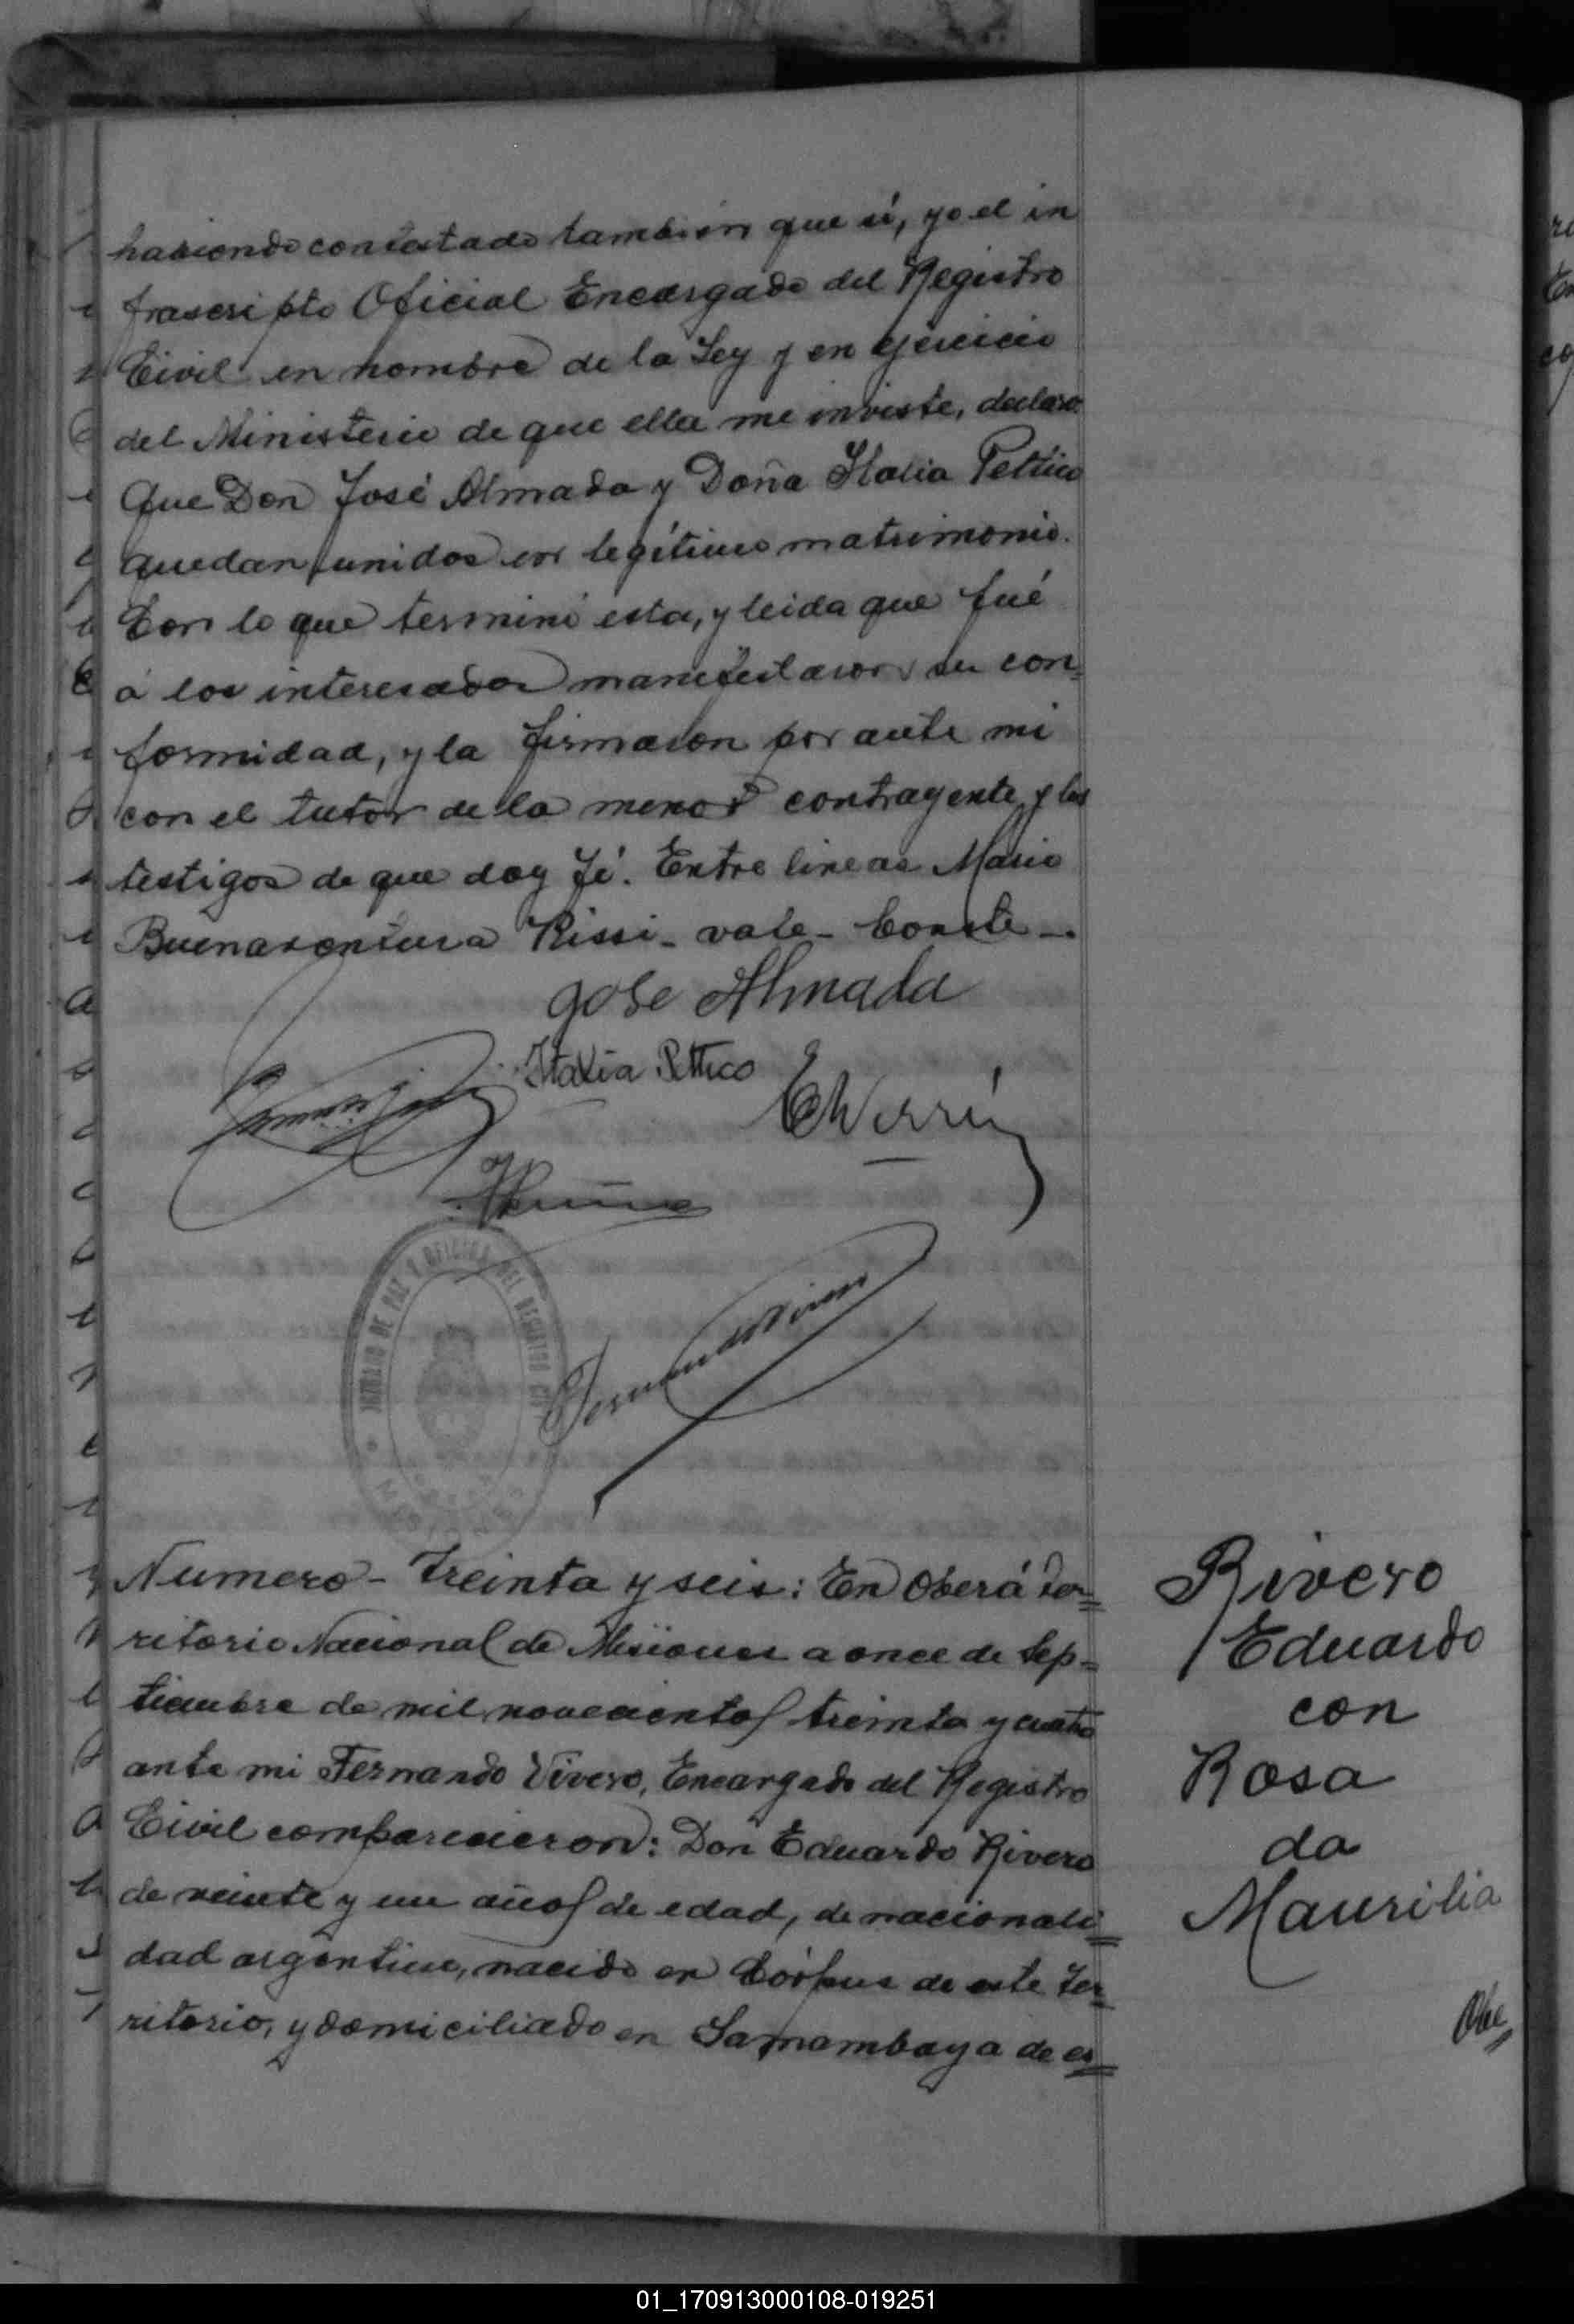 haciendo contestado tambien que sí, yo el in
frascripto Oficial Encargado del Registro
Civil en nombre de la Ley y en ejercicio
del Ministerio de que ella me inviste, declaro
que Don José Almada y Doña Italia Pettico
quedan unidos en legítimo matrimonio.
Con lo que terminó esta, y leida que fué
á los interesados manifestaron su con=
formidad, y la firmaron por ante mi
con el tutor de la menor contrayente y los
testigos de que doy fé. Entre lineas Mario
Buenaventura Rissi - vale - Conste -.
Jose Almada
Italia Pettico
JUZGADO DE PAZ Y OFICINA DEL REGISTRO CIVIL
MISIONES
Fernando Vivero
Numero - Treinta y seis: En Oberá ter=
ritorio Nacional de Misiones a once de Sep=
tiembre de mil novecientos treinta y cuatro
ante mi Fernando Vivero, Encargado del Registro
Civil comparecieron: Don Eduardo Rivero
de veinte y un años de edad, de nacionali=
dad argentino, nacido en Córpus de este Ter=
ritorio, y domiciliado en Samambaya de es=
Rivero
Eduardo
con
Rosa
da
Maurilia
01_170913000108-019251